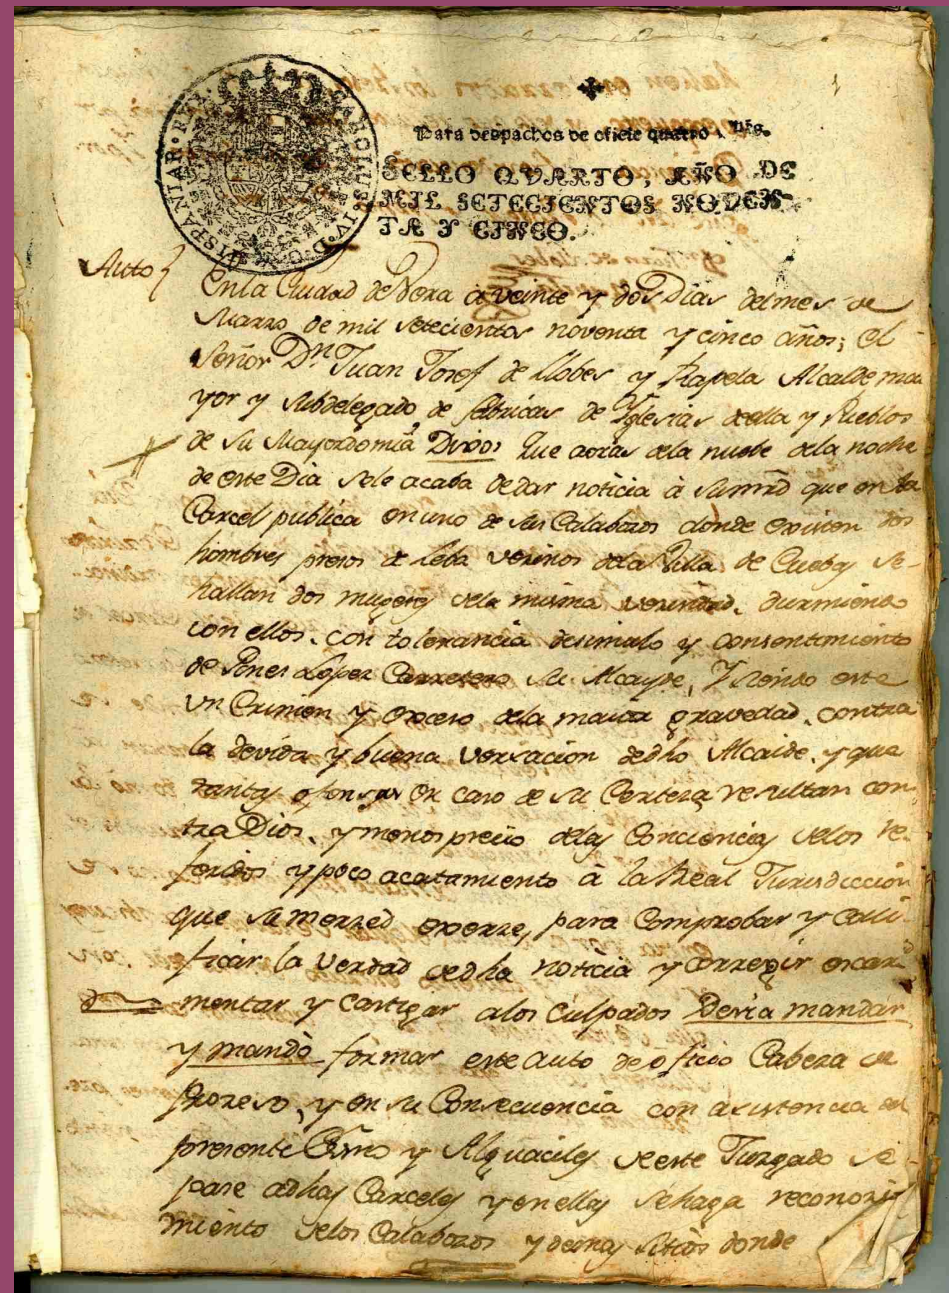 Para despachos de oficio quatro mrs.
SELLO QVARTO, AÑO DE
MIL SETECIENTOS NOVEN-
TA Y CINCO.
CAROLUS IV D G HISPANIAR REX
Auto
En la Ciudad de Vera à veinte y dos Dias del mes de
Marzo de mil setecientos noventa y cinco años; el
Señor Dn Juan Josef de Llobes y Rapela Alcalde ma
yor y subdelegado de fabricas de Yglesias de ella y Pueblos
de su Mayordomia Dixo: Que aoras de la nuebe de la noche
de este Dia se le acaba de dar noticia à su mrd que en la
Carcel publica en uno de sus Calabozos donde existen dos
hombres presos de leba vecinos de la Villa de Cuebas se
hallan dos mugeres de la misma vecindad, durmiendo
con ellos, con tolerancia desimulo y consentimiento
de Gines Lopez Carretero su Alcayde, Y siendo este
un Crimen y exceso de la maior gravedad, contra
la devida y buena versacion de dho Alcaide, y que
tantas ofensas en caso de su Certeza resultan con
tra Dios, y menosprecio de las Conciencias de los re
feridos y poco acatamiento à la Real Jurisdiccion
que su merzed exerze, para Comprobar y Cali
ficar la verdad de dha noticia y Corregir escar
mentar y Castigar a los Culpados Devia mandar
y mandò formar este auto de oficio Cabeza de
Prozeso, y en su Consecuencia con asistencia del
presente Essno y Alguaciles de este Juzgado se
pase a dhas Carceles y en ellas se haga reconozi
miento de los Calabozos y demas sitios donde